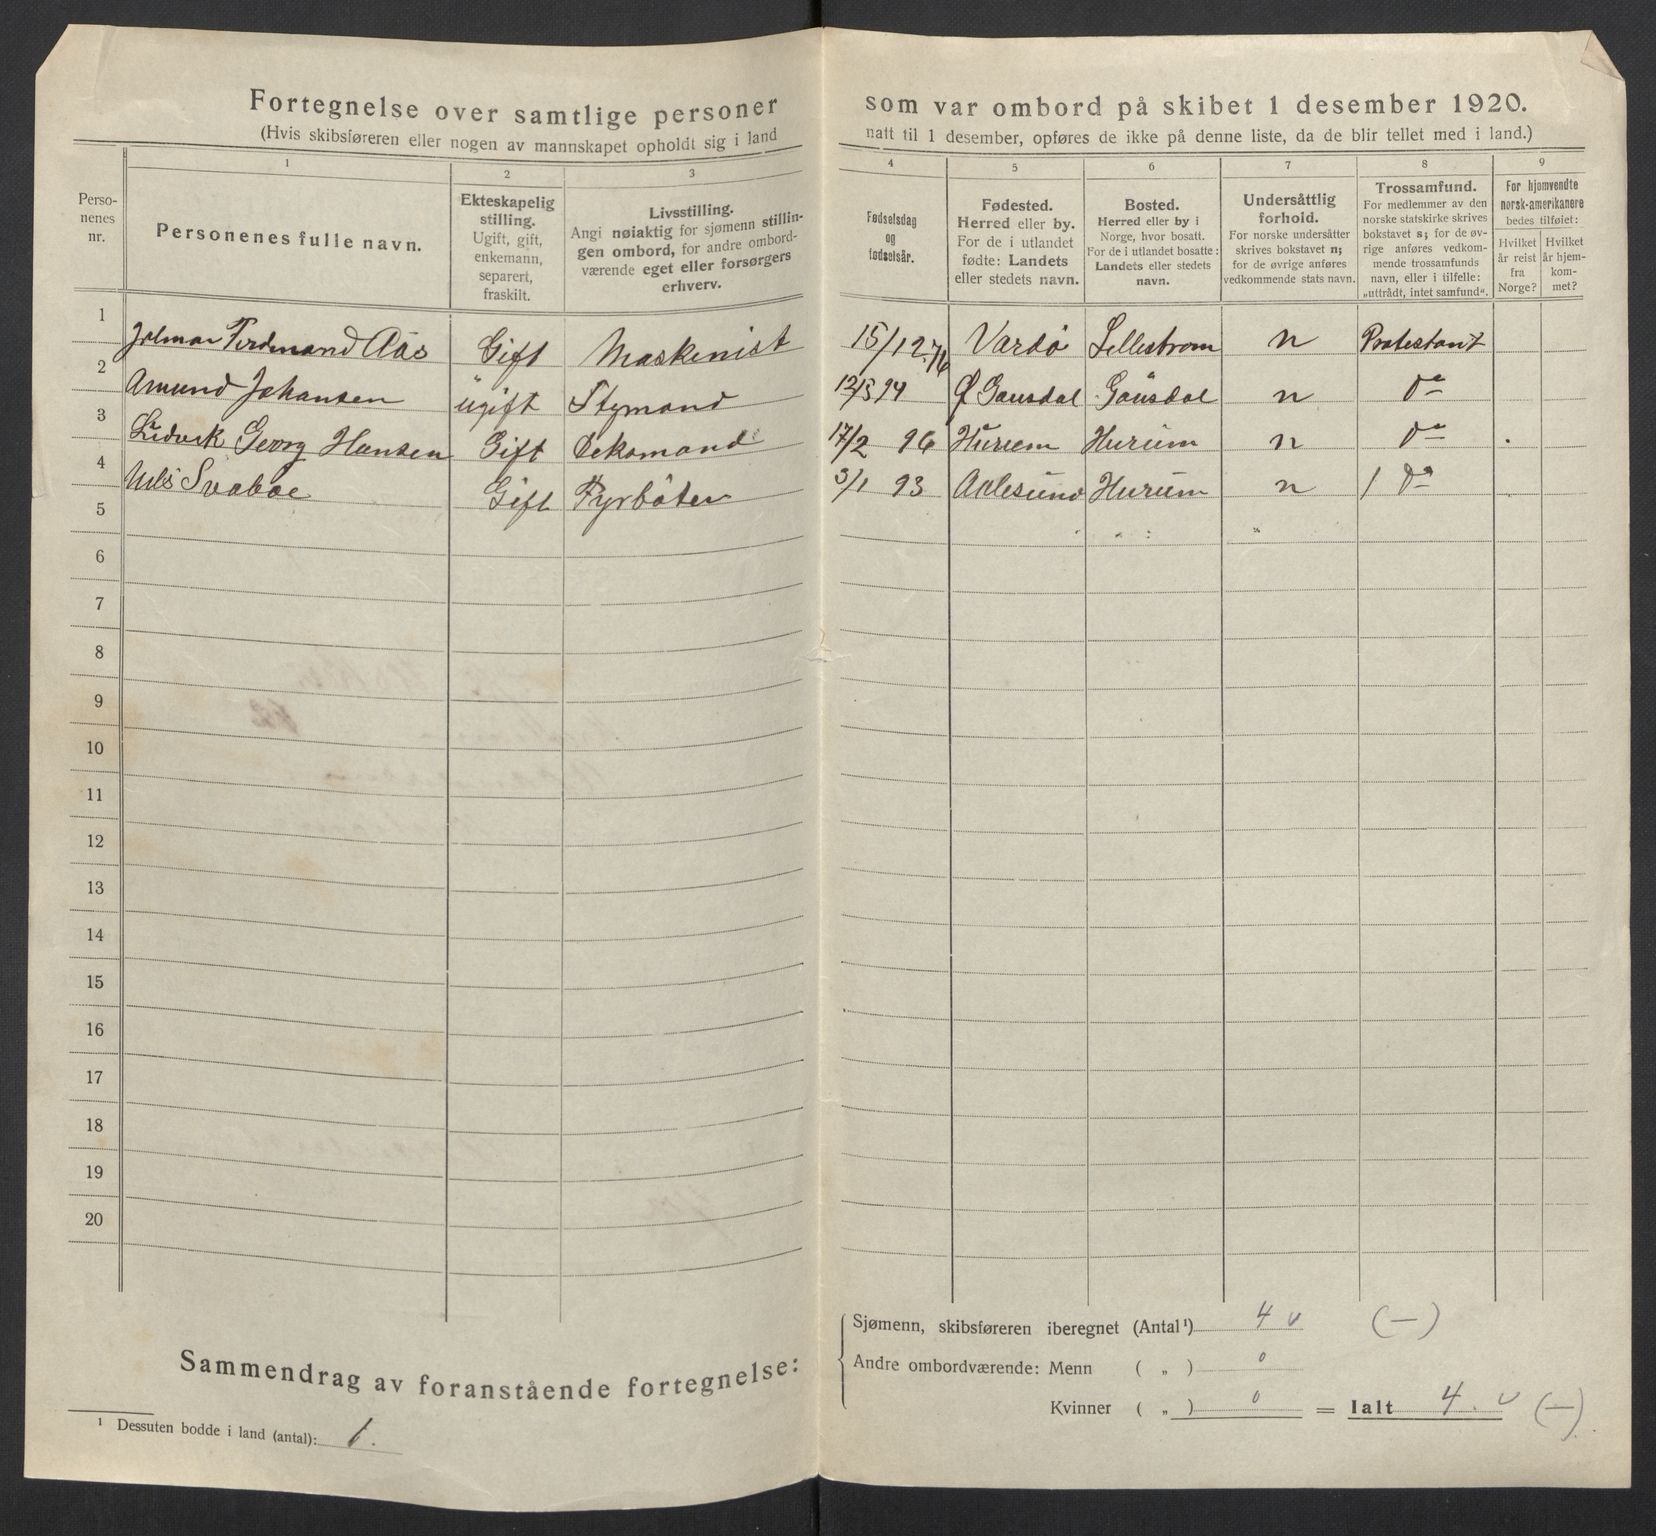 Fortegnelse over samtlige personer som var ombord på skibet 1 desember 1920.
(Hvis skibsføreren eller nogen av mannskapet opholdt sig i land natt til 1 desember, opføres de ikke på denne liste, da de blir tellet med i land.)
1 2 3 4 5 6 7 8 9
Perso-
nenes
nr.
Personenes fulle navn.
Ekteskapelig
stilling.
Ugift, gift,
enkemann,
separert,
fraskilt.
Livsstilling.
Angi nøiaktig for sjømenn stillin-
gen ombord, for andre ombord-
værende eget eller forsørgers
erhverv.
Fødselsdag
og
fødselsår.
Fødested.
Herred eller by.
For de i utlandet
fødte: Landets
eller stedets navn.
Bosted.
Herred eller by i
Norge, hvor bosatt.
For de i utlandet bosatte:
Landets eller stedets
navn.
Undersåttlig
forhold.
For norske undersåtter
skrives bokstavet n;
for de øvrige anføres
vedkommende stats navn.
Trossamfund.
For medlemmer av den
norske statskirke skrives
bokstavet s; for de øv-
rige anføres vedkom-
mende trossamfunds
navn, eller i tilfelle:
„uttrådt, intet samfund“.
For hjemvendte
norsk-amerikanere
bedes tilføiet:
Hvilket
år reist
fra
Norge?
Hvilket
år hjem-
kom-
met?
1 Jalmar Ferdinand Aas Gift Maskinist 15/12.76 Vardö Lillestrom n Protestant
2 Amund Johansen ugift Stymand 12/5 94 Ø Gausdal Gausdal n do
3 Ludvik Georg Hansen Gift Deksmand 17/2 96 Hurum Hurum n do
4 Nils Svaboe Gift Fyrböter 3/1 93 Aalesund Hurum n do
5
6
7
8
9
10
11
12
13
14
15
16
17
18
19
20
Sammendrag av foranstående fortegnelse:
Sjømenn, skibsføreren iberegnet (Antal¹) 4 v (—)
Andre ombordværende: Menn ( „ ) 0
Kvinner ( „ ) 0 = Ialt 4. v (—)
¹ Dessuten bodde i land (antal): 1.